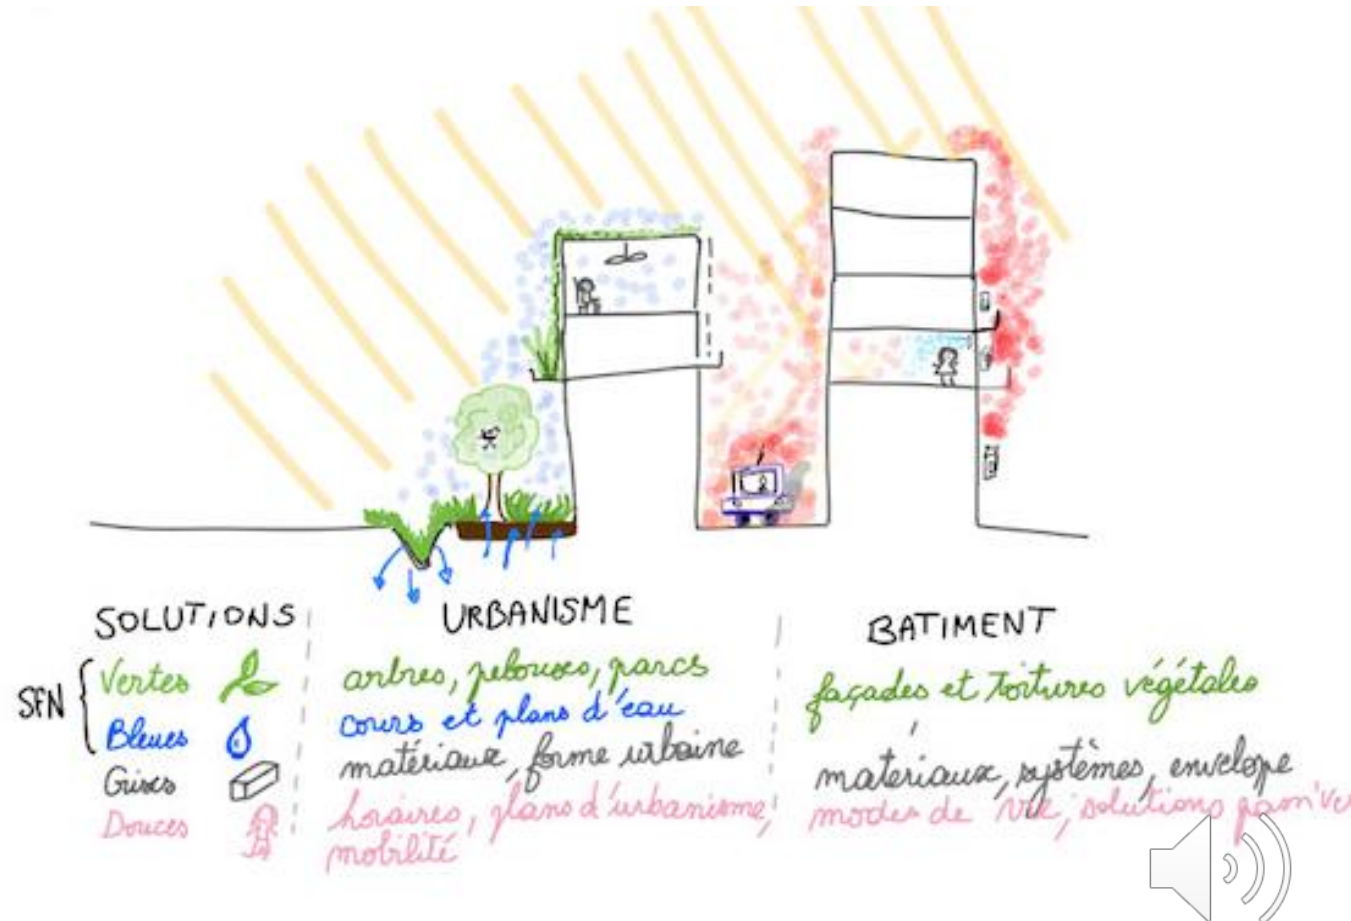 SOLUTIONS
URBANISME
BATIMENT
SFN
Vertes
arbres, pelouses, parcs
façades et toitures végétales
Bleues
cours et plans d'eau
Grises
matériaux, forme urbaine
materiaux, systèmes, envelope
Douces
horaires, plans d'urbanisme,
mobilité
modes de vie, solutions